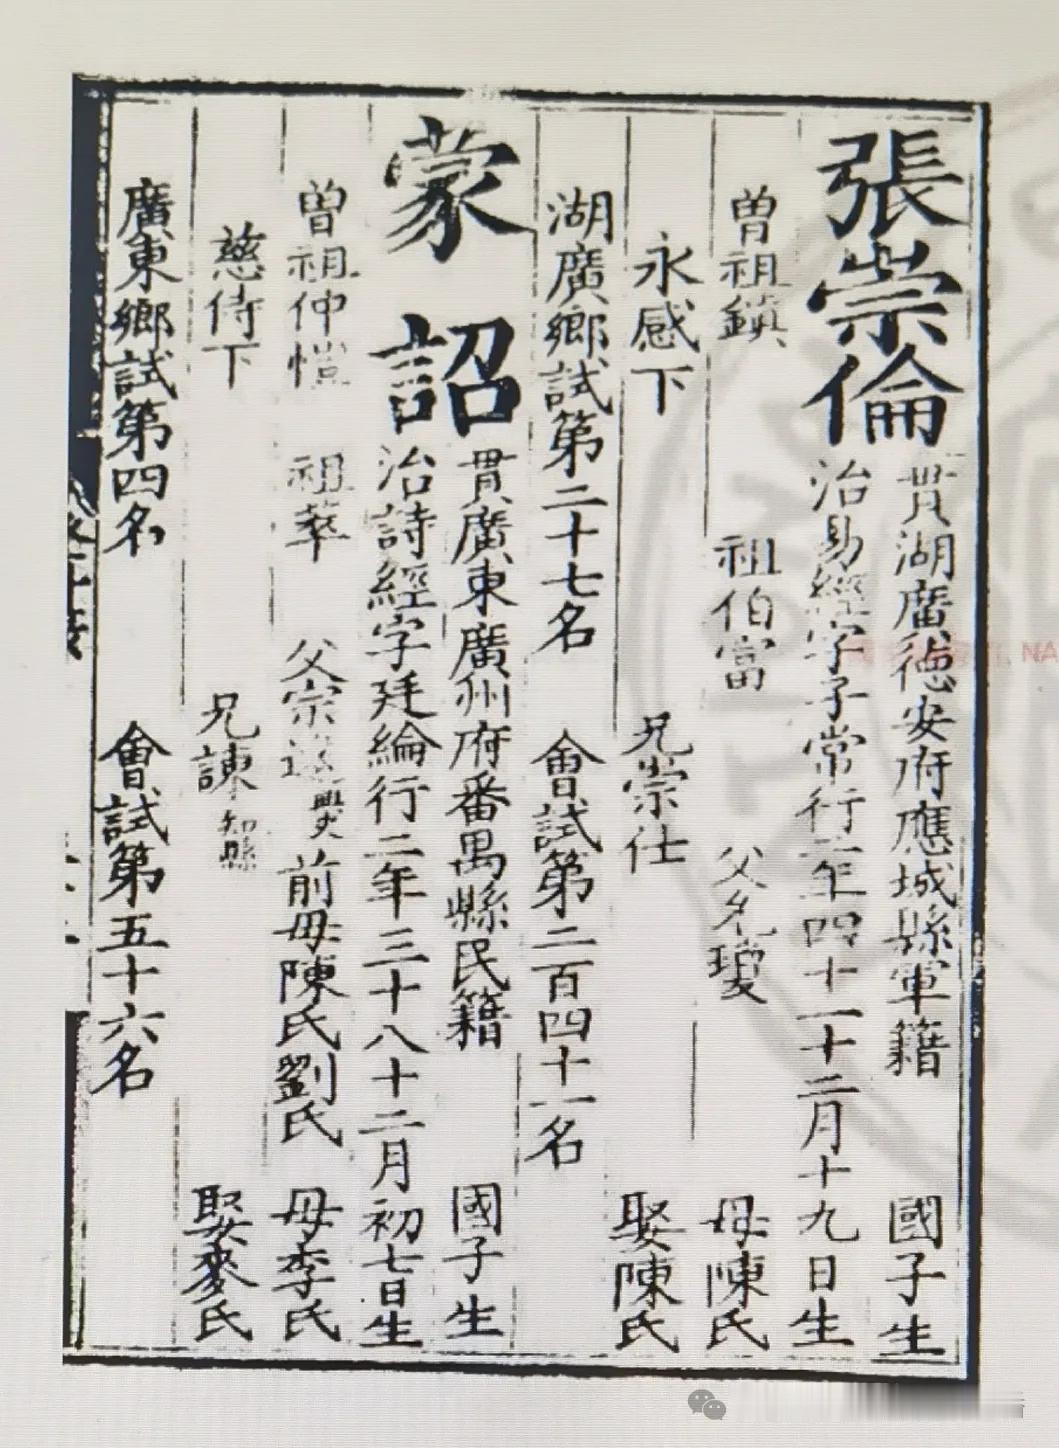 張崇倫
貫湖廣德安府應城縣軍籍 國子生
治易經字子常行二年四十一十二月十九日生
曾祖鎮 祖伯富 父 瓊 母陳氏
永感下 兄崇仕 娶陳氏
湖廣鄉試第二十七名 會試第二百四十一名
蒙詔
貫廣東廣州府番禺縣民籍 國子生
治詩經字廷綸行二年三十八十二月初七日生
曾祖仲愷 祖萃 父宗 前母陳氏劉氏 母李氏
慈侍下 兄諫知縣 娶麥氏
廣東鄉試第四名 會試第五十六名